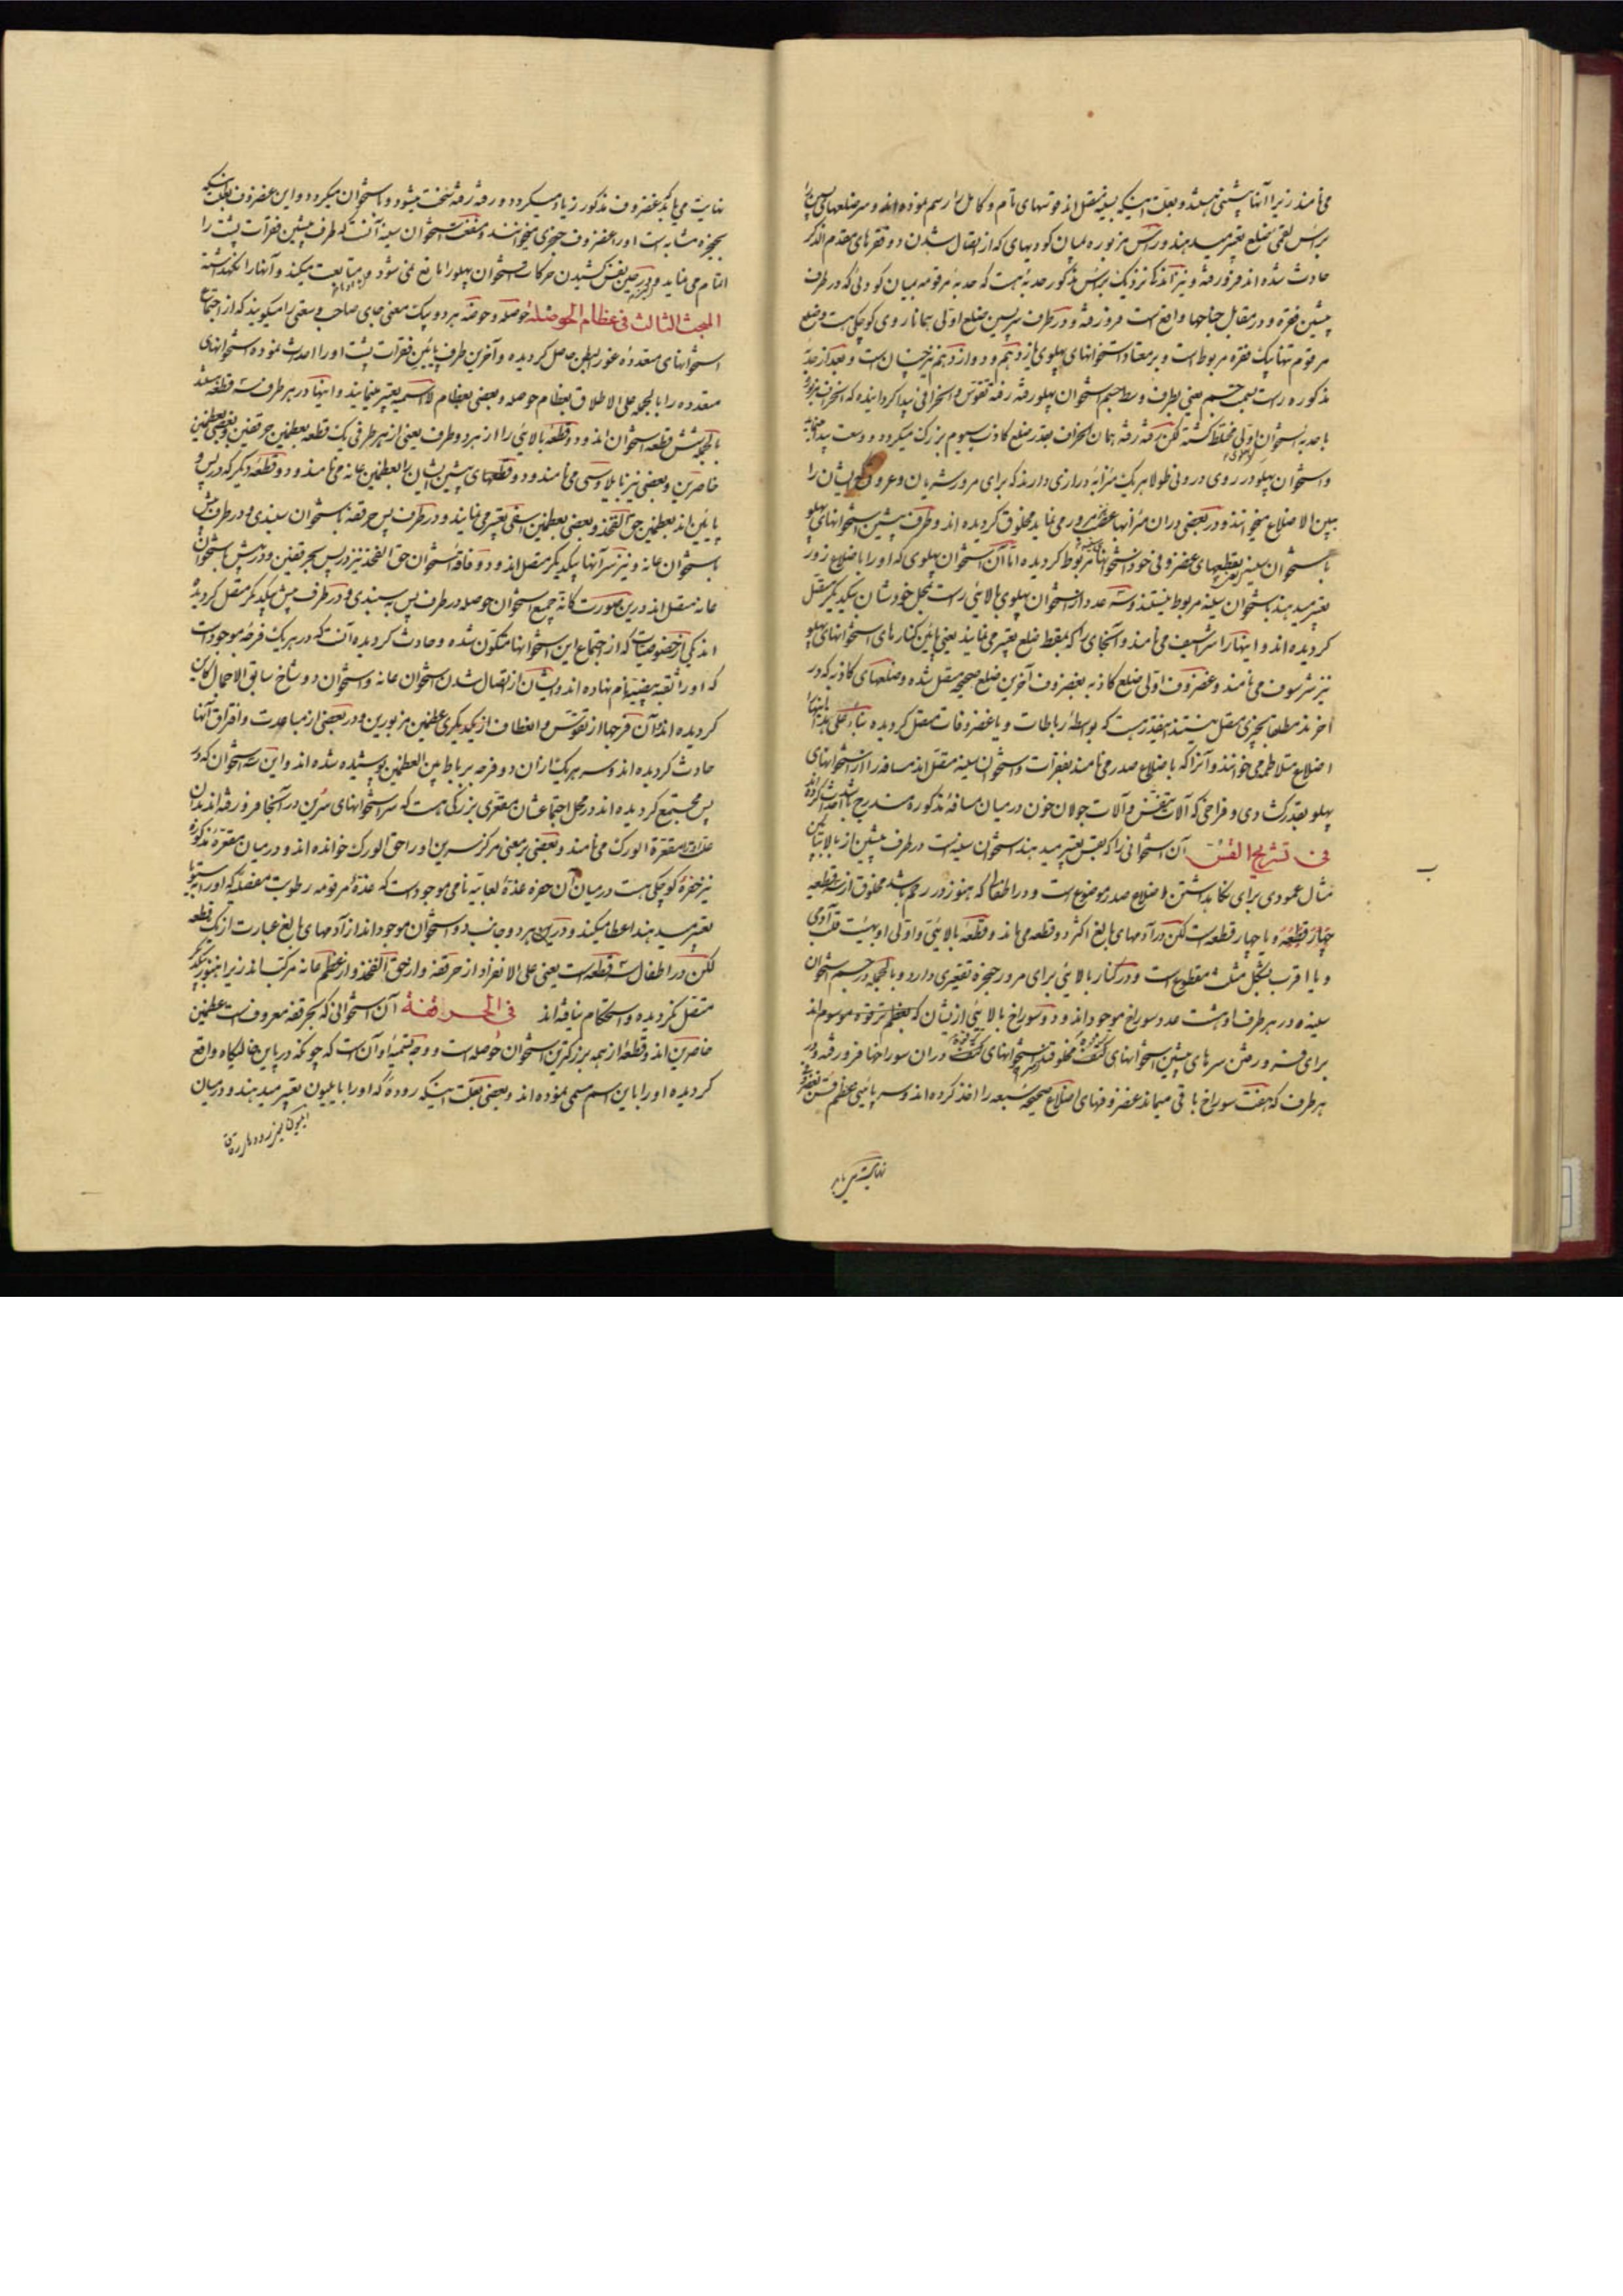 می نامند زیرا آنها پشتی هستند و بعلت اینکه بسینه متصل اند قوسهای تام و کامل را رسم نموده اند و سر ضلعهای پسین را
براس تعبیر میدهند و راس مزبوره بمیان کودیهای که از اتصال شدن دو فقرهای مقدم الذکر
حادث شده اند فرو رفته و نیز آنکه نزدیک براس مذکور حدبه هست که حدبه مرقومه بمیان کودئی که در طرف
پیشین فقره و در مقابل جناحها واقع است فرو رفته و در طرف پسین ضلع اولی همانا روی کوچکی هست و ضلع
مرقوم تنها بیک فقره مربوط است و بر معتاد استخوانهای پهلوی یازدهم و دوازدهم نیز چنان است و بعد از حدبه
مذکوره راست بسمت جسم یعنی بطرف وسط جسم استخوان پهلو رفته رفته تقوس و انحرافی پیدا گردانیده که انحراف مزبوره
با حدبه استخوان اولی مختلط گشته لکن رفته رفته همان انحراف بقدر ضلع کاذب سیوم بزرگ میگردد و وسعت پیدا مینماید
و استخوان پهلو در روی درونی طولا هر یک میزابه درازی دارند که برای مرور شریان و عروق ایشان را
بین الاضلاع میخوانند و در بعضی دران میزابها عصب نیز مرور می نماید مخلوق گردیده اند و طرف پیشین استخوانهای پهلو
با استخوان سینه بقطعهای غضروفی خود استخوانها مربوط گردیده اما آن استخوان پهلوی که او را باضلاع زور
تعبیر میدهند باستخوان سینه مربوط نیستند و سه عدد از استخوان پهلوی بالائی راست بمحل خودشان بیکدیگر متصل
گردیده اند و اینها را شراسیف می نامند و آنجای را که بمقط ضلع تعبیر می نمایند یعنی پائین کنارهای استخوانهای پهلو
نیز شرسوف می نامند و غضروف اولی ضلع کاذبه بغضروف آخرین ضلع صحیحه متصل شده و ضلعهای کاذبه که در
آخرند مطلقا بچیزی متصل نیستند اینقدر هست که بواسطه رباطات و یا غضروفات متصل گردیده بناء علی هذا اینها را
اضلاع متلاطم می خوانند و آنرا که باضلاع صدر می نامند بفقرات و استخوان سینه متصل اند مسافه را از استخوانهای
پهلو بقدر گشادی و فراخی که آلات تنفس و آلات جولان خون درمیان مسافه مذکوره مندرج باشد احداث کرده اند
فی تشریح القس آن استخوانی را که بقس تعبیر میدهند استخوان سینه است در طرف پیشین از بالا بپائین
مثال عمودی برای نگاهداشتن اضلاع صدر موضوع است و در اطفال که هنوز در رحم باشد مخلوق از سه قطعه
چهار قطعه و یا چهار قطعه است لکن در آدمهای بالغ اکثر دو قطعه می ماند و قطعه بالائی و اولی او بهیئت قلب آدمی
و یا اقرب بشکل مثلث مقطوع است و در کنار بالائی برای مرور حنجره تقعیری دارد و بالجمله در جسم استخوان
سینه در هر طرف او هشت عدد سوراخ موجود اند و دو سوراخ بالائی از ایشان که بعظم ترقوه موسوم اند
برای فرو رفتن سرهای پیشین استخوانهای کتف مخلوقند استخوانهای کتف دران سوراخها فرو رفته و در
هر طرف که هفت سوراخ باقی میماند غضروفهای اضلاع صحیحه سبعه را اخذ کرده اند و سر پائینی عظم قس بغضروف
نهایت می یابد
ب
نهایت می یابد که غضروف مذکور زیاد میگردد و رفته رفته سخت میشود و استخوان میگردد و این غضروف بعلت اینکه
بخنجره مشابه است او را غضروف خنجری میخوانند و منفعت استخوان سینه آنست که طرف پیشین فقرات پشت را
اتمام می نماید و در حین نفس کشیدن حرکات استخوان پهلو را مانع نمی شود و متابعت میکند و آنها را نگهداشته
المبحث الثالث فی عظام الحوصلة حوصله و حوضه هر دو بیک معنی جای صاحب وسعتی را میگویند که از اجتماع
استخوانهای متعدده غور بطن حاصل گردیده و آخرین طرف پائین فقرات پشت او را احداث نموده استخوانهای
متعدده را بالجمله علی الاطلاق بعظام حوصله و بعضی بعظام لا اسمیه تعبیر مینمایند و اینها در هر طرف سه قطعه هستند
بالجمله شش قطعه استخوان اند و دو قطعه بالائی را از هر دو طرف یعنی از هر طرفی یک قطعه بعظمین حرقفتین و بعضی بعظمین
خاصرین و بعضی نیز می نامند و دو قطعهای پیشین ایشان را بعظمین عانه می نامند و دو قطعه دیگر که در پس و
پائین اند بعظمین حق الفخذ و بعضی بعظمین تعبیر می نمایند و در طرف پس حرقفه باستخوان سبندی و در طرف پیش
باستخوان عانه و نیز سر آنها بیکدیگر متصل اند و دو استخوان حق الفخذ نیز در پس بحرقفتین و در پیش باستخوان
عانه متصل اند درین صورت کانه جمیع استخوان حوصله در طرف پس به سبندی و در طرف پیش بیکدیگر متصل گردیده
اند یکی از خصوصیات که از اجتماع این استخوانها متکون شده و حادث گردیده آنست که در هر یک فرجه موجود است
که او را ثقبه بیضیه نام نهاده اند و ایشان از اتصال شدن استخوان عانه و استخوان دو شاخ سابق الاجمال کاین
گردیده اند و آن فرجها از تقوس و انعطاف از یکدیگری عظمین مزبورین و در بعضی از مباعدت و افتراق آنها
حادث گردیده اند و سر هر یک ازان دو فرجه برباط بین العظمین پوشیده شده اند و این سه استخوان که در
پس مجتمع گردیده اند در محل اجتماعشان مقعری بزرگی هست که سر استخوانهای سرین در آنجا فرو رفته اند بدان
علت او را مقعرة الورک می نامند و بعضی بمعنی مرکز سرین او را حق الورک خوانده اند و درمیان مقعره مذکوره
نیز حفره کوچکی هست درمیان آن حفره غده لعابیه نامی موجود است که غده مرقومه رطوبت مفصله که او را
تعبیر میدهند اعطا میکند و درین هر دو جانب دو استخوان موجود اند از آدمهای بالغ عبارت از یک قطعه
لکن در اطفال سه قطعه است یعنی علی الانفراد از حرقفه و از حق الفخذ و از عظم عانه مرکب اند زیرا هنوز بیکدیگر
متصل نگردیده و استحکام نیافته اند فی الحرقفة آن استخوانی که بحرقفه معروف است عظمین
خاصرین اند و قطعه از همه بزرگترین استخوان حوصله است و وجه تسمیه او آن است که چونکه در پائین خالیگاه واقع
گردیده او را باین اسم مسمی نموده اند و بعضی بعلت اینکه روده که او را بایلیون تعبیر میدهند و درمیان